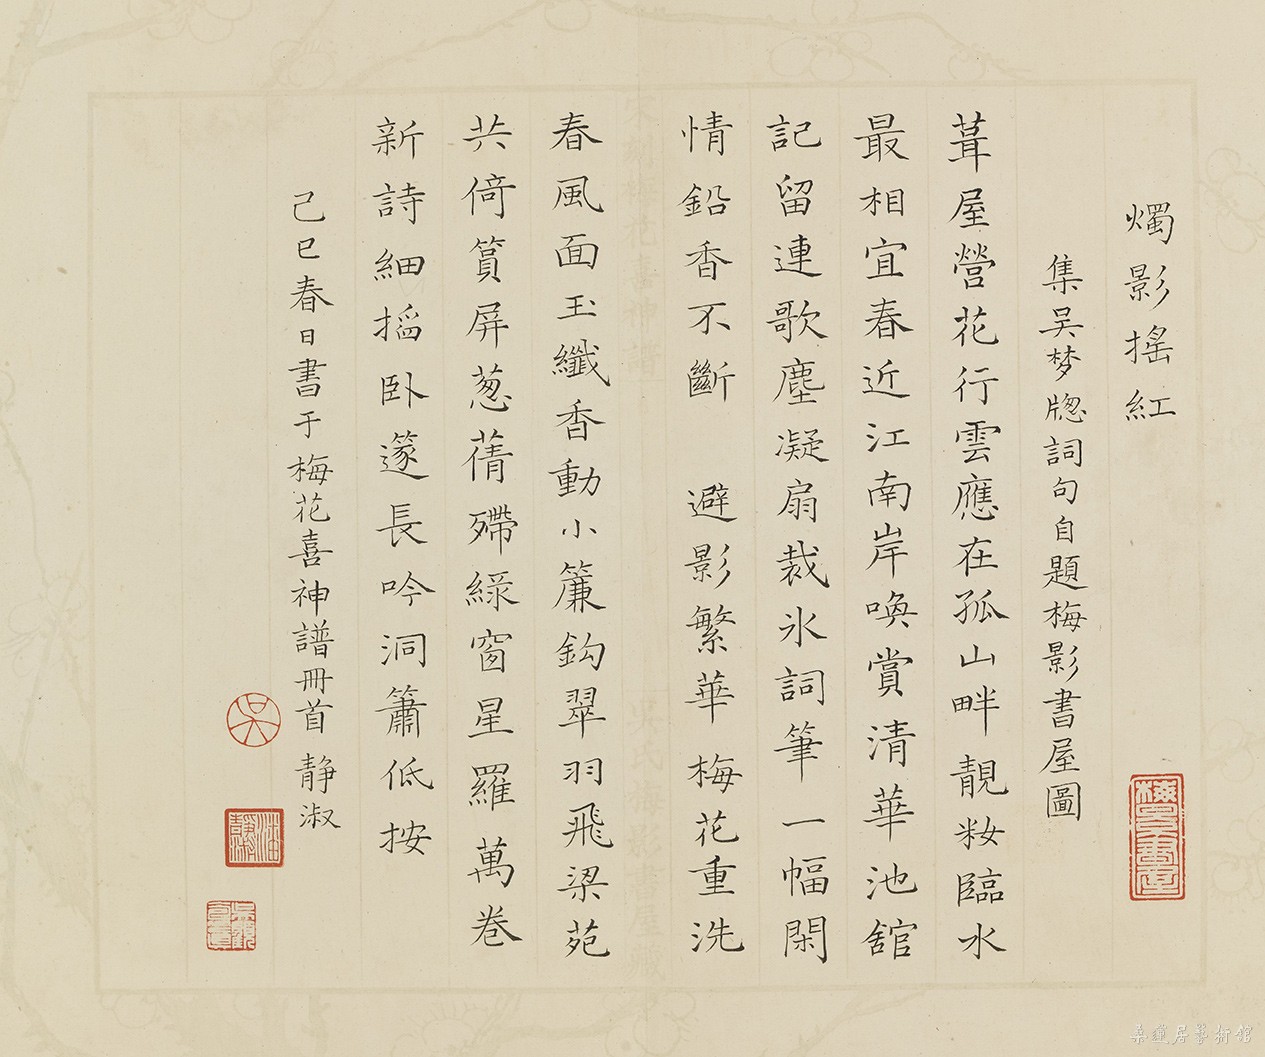 燭影搖紅
集吳梦牕詞句自題梅影書屋圖
葺屋營花行雲應在孤山畔靚籹臨水
最相宜春近江南岸喚賞清華池舘
記留連歌塵凝扇裁氷詞筆一幅閑
情鉛香不斷　避影繁華梅花重洗
春風面玉纖香動小簾鈎翠羽飛梁苑
共倚篔屏葱蒨殢綠窗星羅萬卷
新詩細搯卧篴長吟洞簫低按
己巳春日書于梅花喜神譜冊首 静淑
梅景書屋
吳
宋刻梅花喜神譜
吳氏梅影書屋藏
桑蓮居藝術館